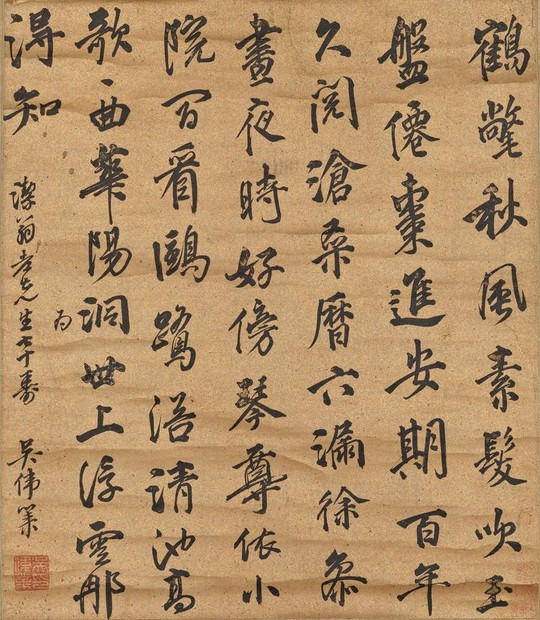 鶴氅秋風素髮吹玉
盤僊棗進安期百年
久閱滄桑曆六漏徐參
晝夜時好傍琴尊依小
院閒看鷗鷺浴清池高
歌一曲華陽洞世上浮雲那
得知
為
潔翁老先生七十壽 吳偉業